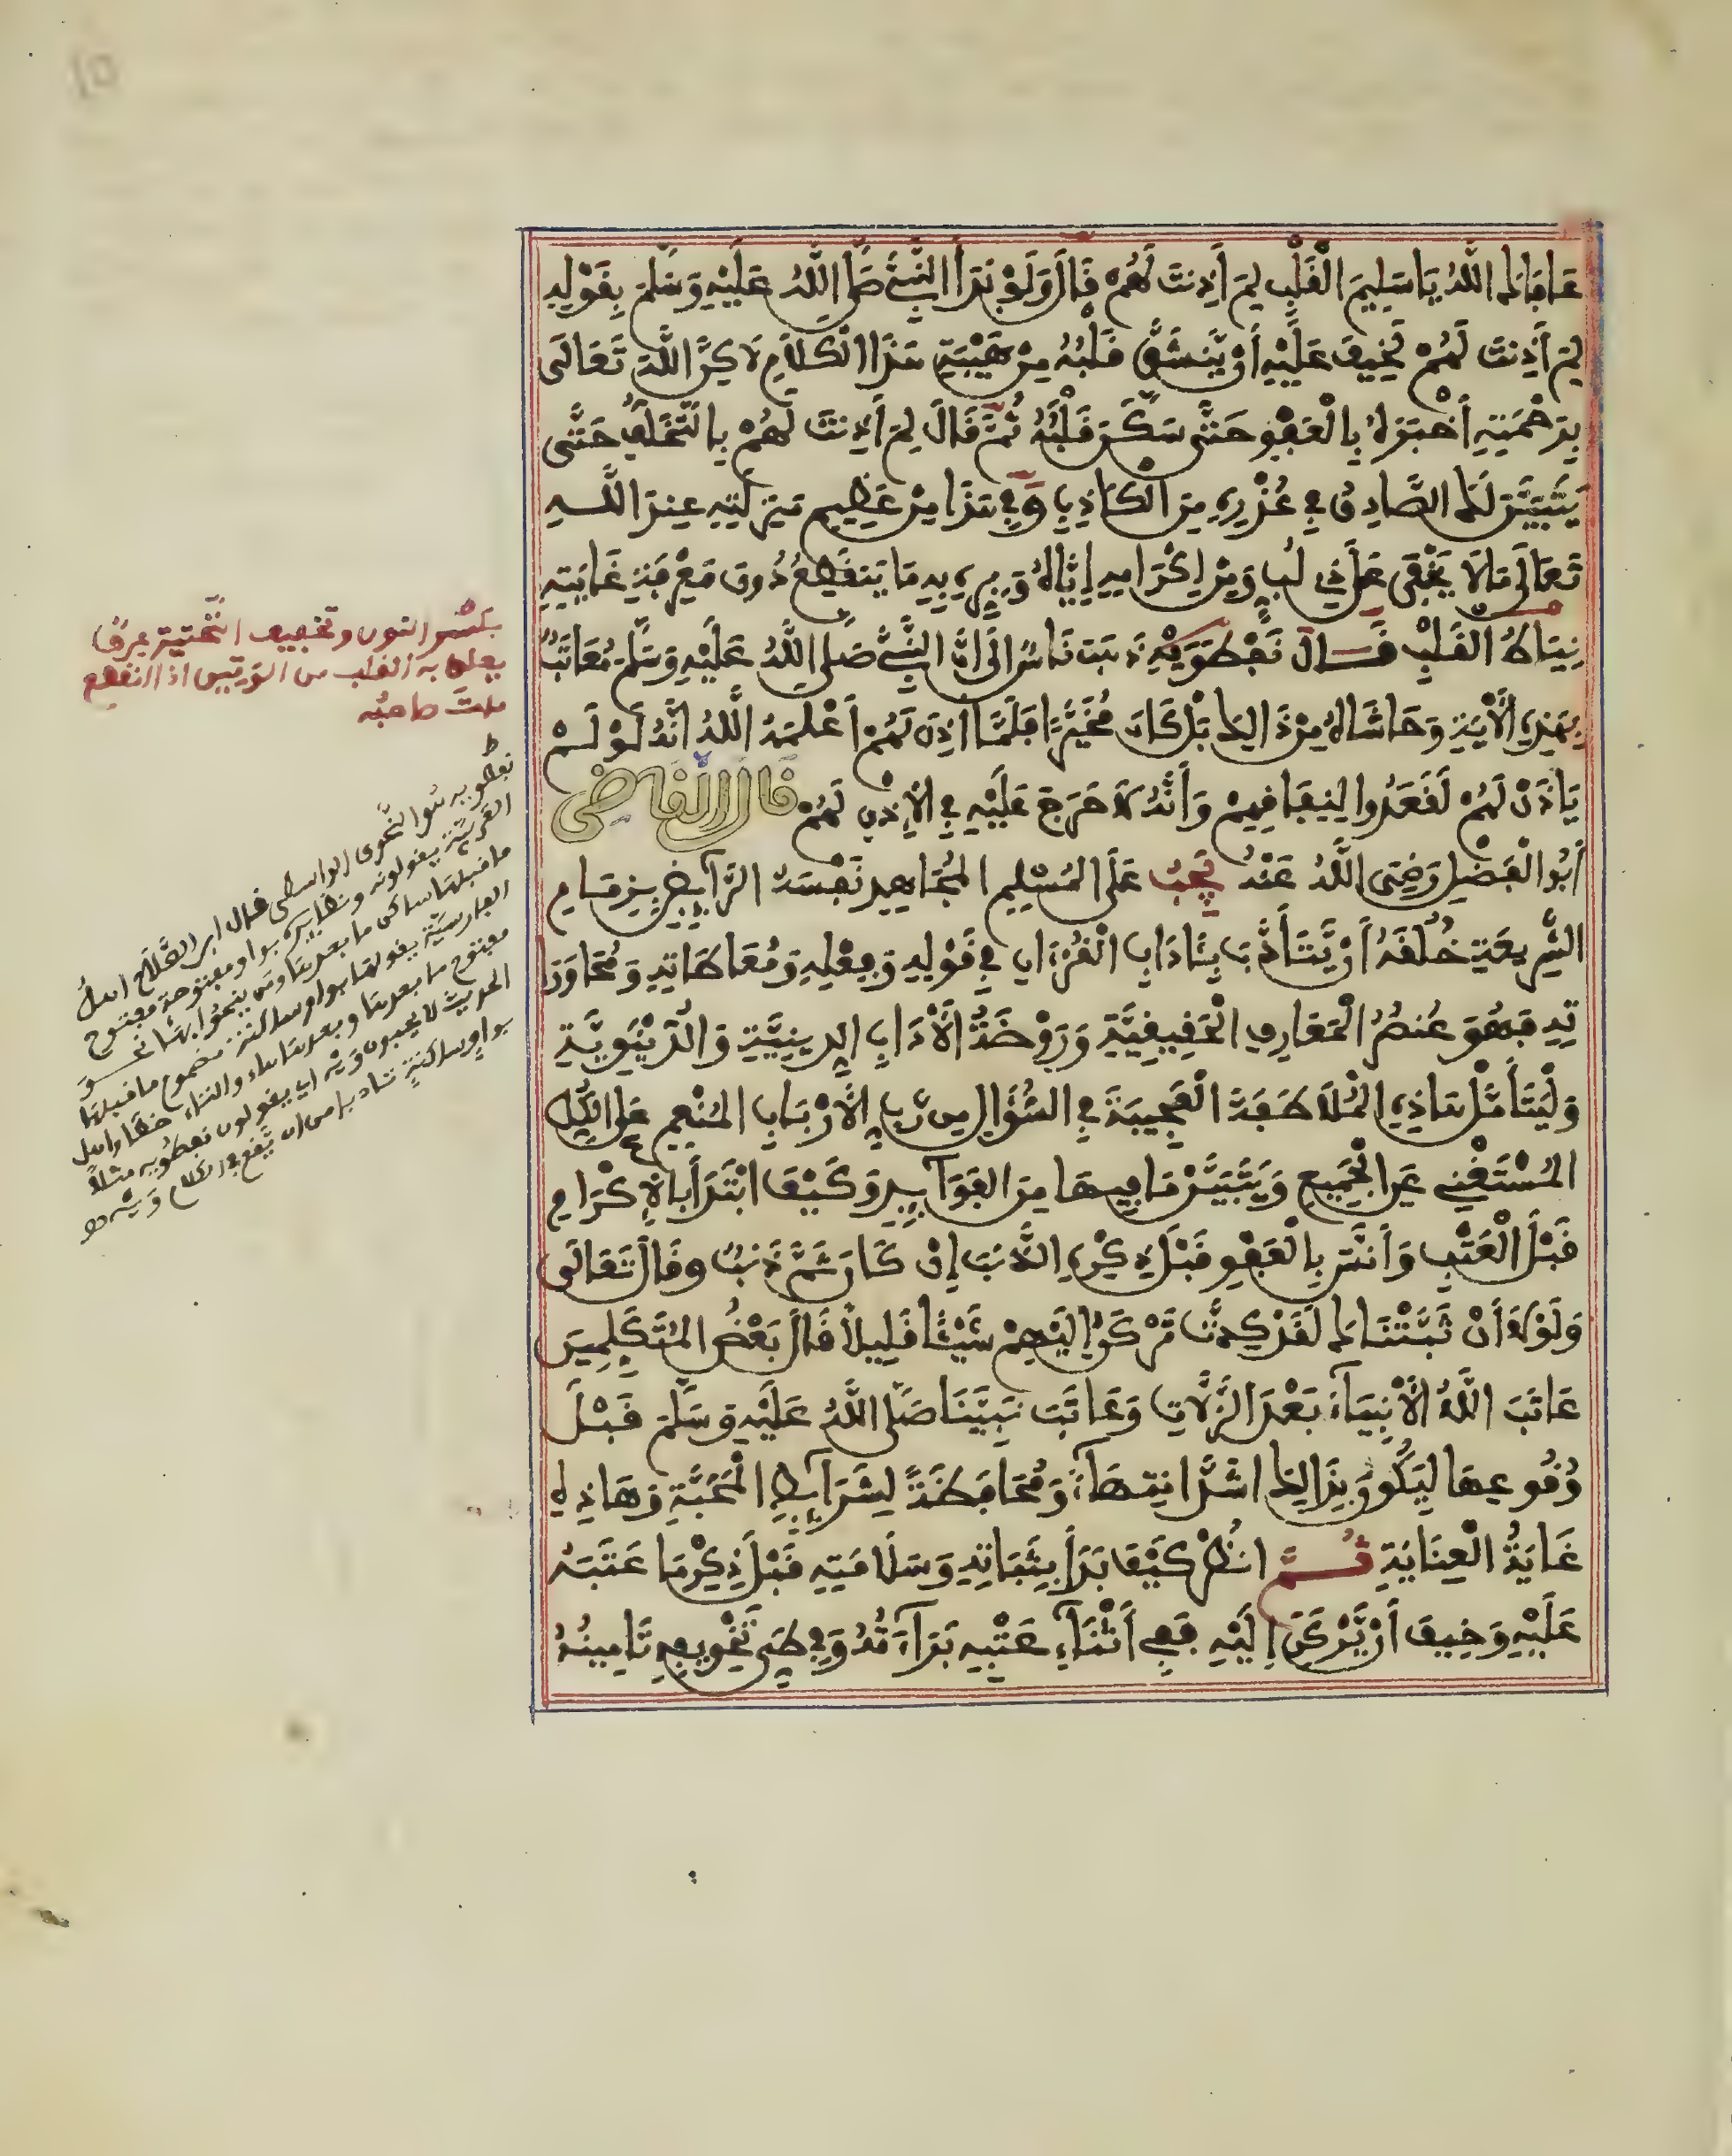 عَافَاكَ اللَّهُ يَا سَلِيمَ الْقَلْبِ لِمَ أَذِنتَ لَهُمْ قَالَ وَلَوْ بَدَأَ النَّبِيَّءَ صَلَّى اللَّهُ عَلَيْهِ وَسَلَّمَ بِقَوْلِهِ
لِمَ أَذِنتَ لَهُمْ لَخِيفَ عَلَيْهِ أَنْ يَّنشَقَّ قَلْبُهُ مِنْ هَيْبَةِ هَذَا الْكَلَامِ لَاكِنَّ اللَّهَ تَعَالَى
بِرَحْمَتِهِ أَخْبَرَهُ بِالْعَفْوِ حَتَّى سَكَنَ قَلْبُهُ ثُمَّ قَالَ لِمَ أَذِنتَ لَهُمْ بِالتَّخَلُّفِ حَتَّى
يَتَبَيَّنَ لَكَ الصَّادِقُ فِي عُذْرِهِ مِنَ الْكَاذِبِ وَفِي هَذَا مِنْ عَظِيمِ مَنزِلَتِهِ عِندَ اللَّهِ
تَعَالَى مَا لَا يَخْفَى عَلَى ذِي لُبٍّ وَمِنِ اكْرَامِهِ إِيَّاهُ وَبِرِّهِ بِهِ مَا يَنقَطِعُ دُونَ مَعْرِفَةِ غَايَتِهِ
نِيَاطُ القَلْبِ قَالَ نَفْطَوَيْهِ ذَهَبَ نَاسٌ الَى انَّ النَّبِيَّءَ صَلَّى اللَّهُ عَلَيْهِ وَسَلَّمَ مُعَاتَبٌ
بِهَذِهِ الْأَيَةِ وَحَاشَاهُ مِنْ ذَالِكَ بَلْ كَانَ مُخَيَّرًا فَلَمَّا اذِنَ لَهُمُ أَعْلَمَهُ اللَّهُ انَّهُ لَوْ لَمْ
يَاذَنْ لَهُمْ لَقَعَدُوا لِنِفَاقِهِمْ وَأَنَّهُ لَا حَرَجَ عَلَيْهِ فِي الْإِذْنِ لَهُمْ قَالَ الْقَاضِي
أَبُو الْفَضْلِ رَضِيَ اللَّهُ عَنْهُ يَجِبُ عَلَى المُسْلِمِ المُجَاهِدِ نَفْسَهُ الرَّآئِضِ بِزِمَامِ
الشَّرِيعَةِ خُلُقَهُ أَنْ يَّتَأَدَّبَ بِـَٔادَابِ الْقُرْءَانِ فِي قَوْلِهِ وَفِعْلِهِ وَمُعَاطَاتِهِ وَمُحَاوَرَا
تِهِ فَهُوَ عُنصُرُ الْمَعَارِفِ الْحَقِيقِيَّةِ وَرَوْضَةُ الْأَدَابِ الدِّينِيَّةِ وَالدُّنْيَوِيَّةِ
وَلْيَتَأَمَّلْ هَاذِهِ الْمُلَاطَفَةَ الْعَجِيبَةَ فِي السُّؤَالِ مِن رَّبِّ الْأَرْبَابِ المُنْعِمِ عَلَى الكُلِّ
المُسْتَغْنِي عَنِ الْجَمِيعِ وَيَتَبَيَّنْ مَا فِيهَا مِنَ الفَوَآئِدِ وَكَيْفَ ابْتَدَأَ بِالْإِكْرَامِ
قَبْلَ الْعَتْبِ وَأَنَّسَ بِالْعَفْوِ قَبْلَ ذِكْرِ الذَّنبِ إِن كَانَ ثَمَّ ذَنبٌ وقَالَ تَعَالَى
وَلَوْلَا أَنْ ثَبَّتْنَاكَ لَقَدْ كِدتَّ تَرْكَنُ إِلَيْهِمْ شَيْئًا قَلِيلًا قَالَ بَعْضُ المُتَكَلِّمِينَ
عَاتَبَ اللَّهُ الْأَنْبِيَاءَ بَعْدَ الزَّلَّاتِ وَعَاتَبَ نَبِيَّنَا صَلَّى اللَّهُ عَلَيْهِ وَسَلَّمَ قَبْلَ
وُقُوعِهَا لِيَكُونَ بِذَالِكَ اشَدَّ انتِهَاءً وَمُحَافَظَةً لِشَرَآئِطِ الْمَحَبَّةِ وَهَاذِهِ
غَايَةُ الْعِنَايَةِ ثُمَّ انظُرْ كَيْفَ بَدَأَ بِثَبَاتِهِ وَسَلَامَتِهِ قَبْلَ ذِكْرِ مَا عَتَبَهُ
عَلَيْهِ وَخِيفَ أَنْ يَّرْكَنَ إِلَيْهِ فَفِي أَثْنَاءِ عَتْبِهِ بَرَآءَتُهُ وَفِي طَيِّ تَخْوِيفِهِ تَامِينُهُ
بكسر النون وتخفيف التحتية عرق
يعلق به القلب من الوتين اذا انقطع
مات صاحبه
نفطويه هو النحوي الواسطي قال ابن الصلاح اهل
العربية يقولونه ونظايره بواو مفتوحة مفتوح
ما قبلها ساكن ما بعدها ومن ينحوا بها نحو
الفارسية يقولها بواو ساكنة مضموم ما قبلها
مفتوح ما بعدها وبعدها هاء والتاء خطا واهل
الحديث لا يحبون ويه اي يقولون نفطويه مثلا
بواو ساكنة تادبا من ان يقع في الكلام ويه